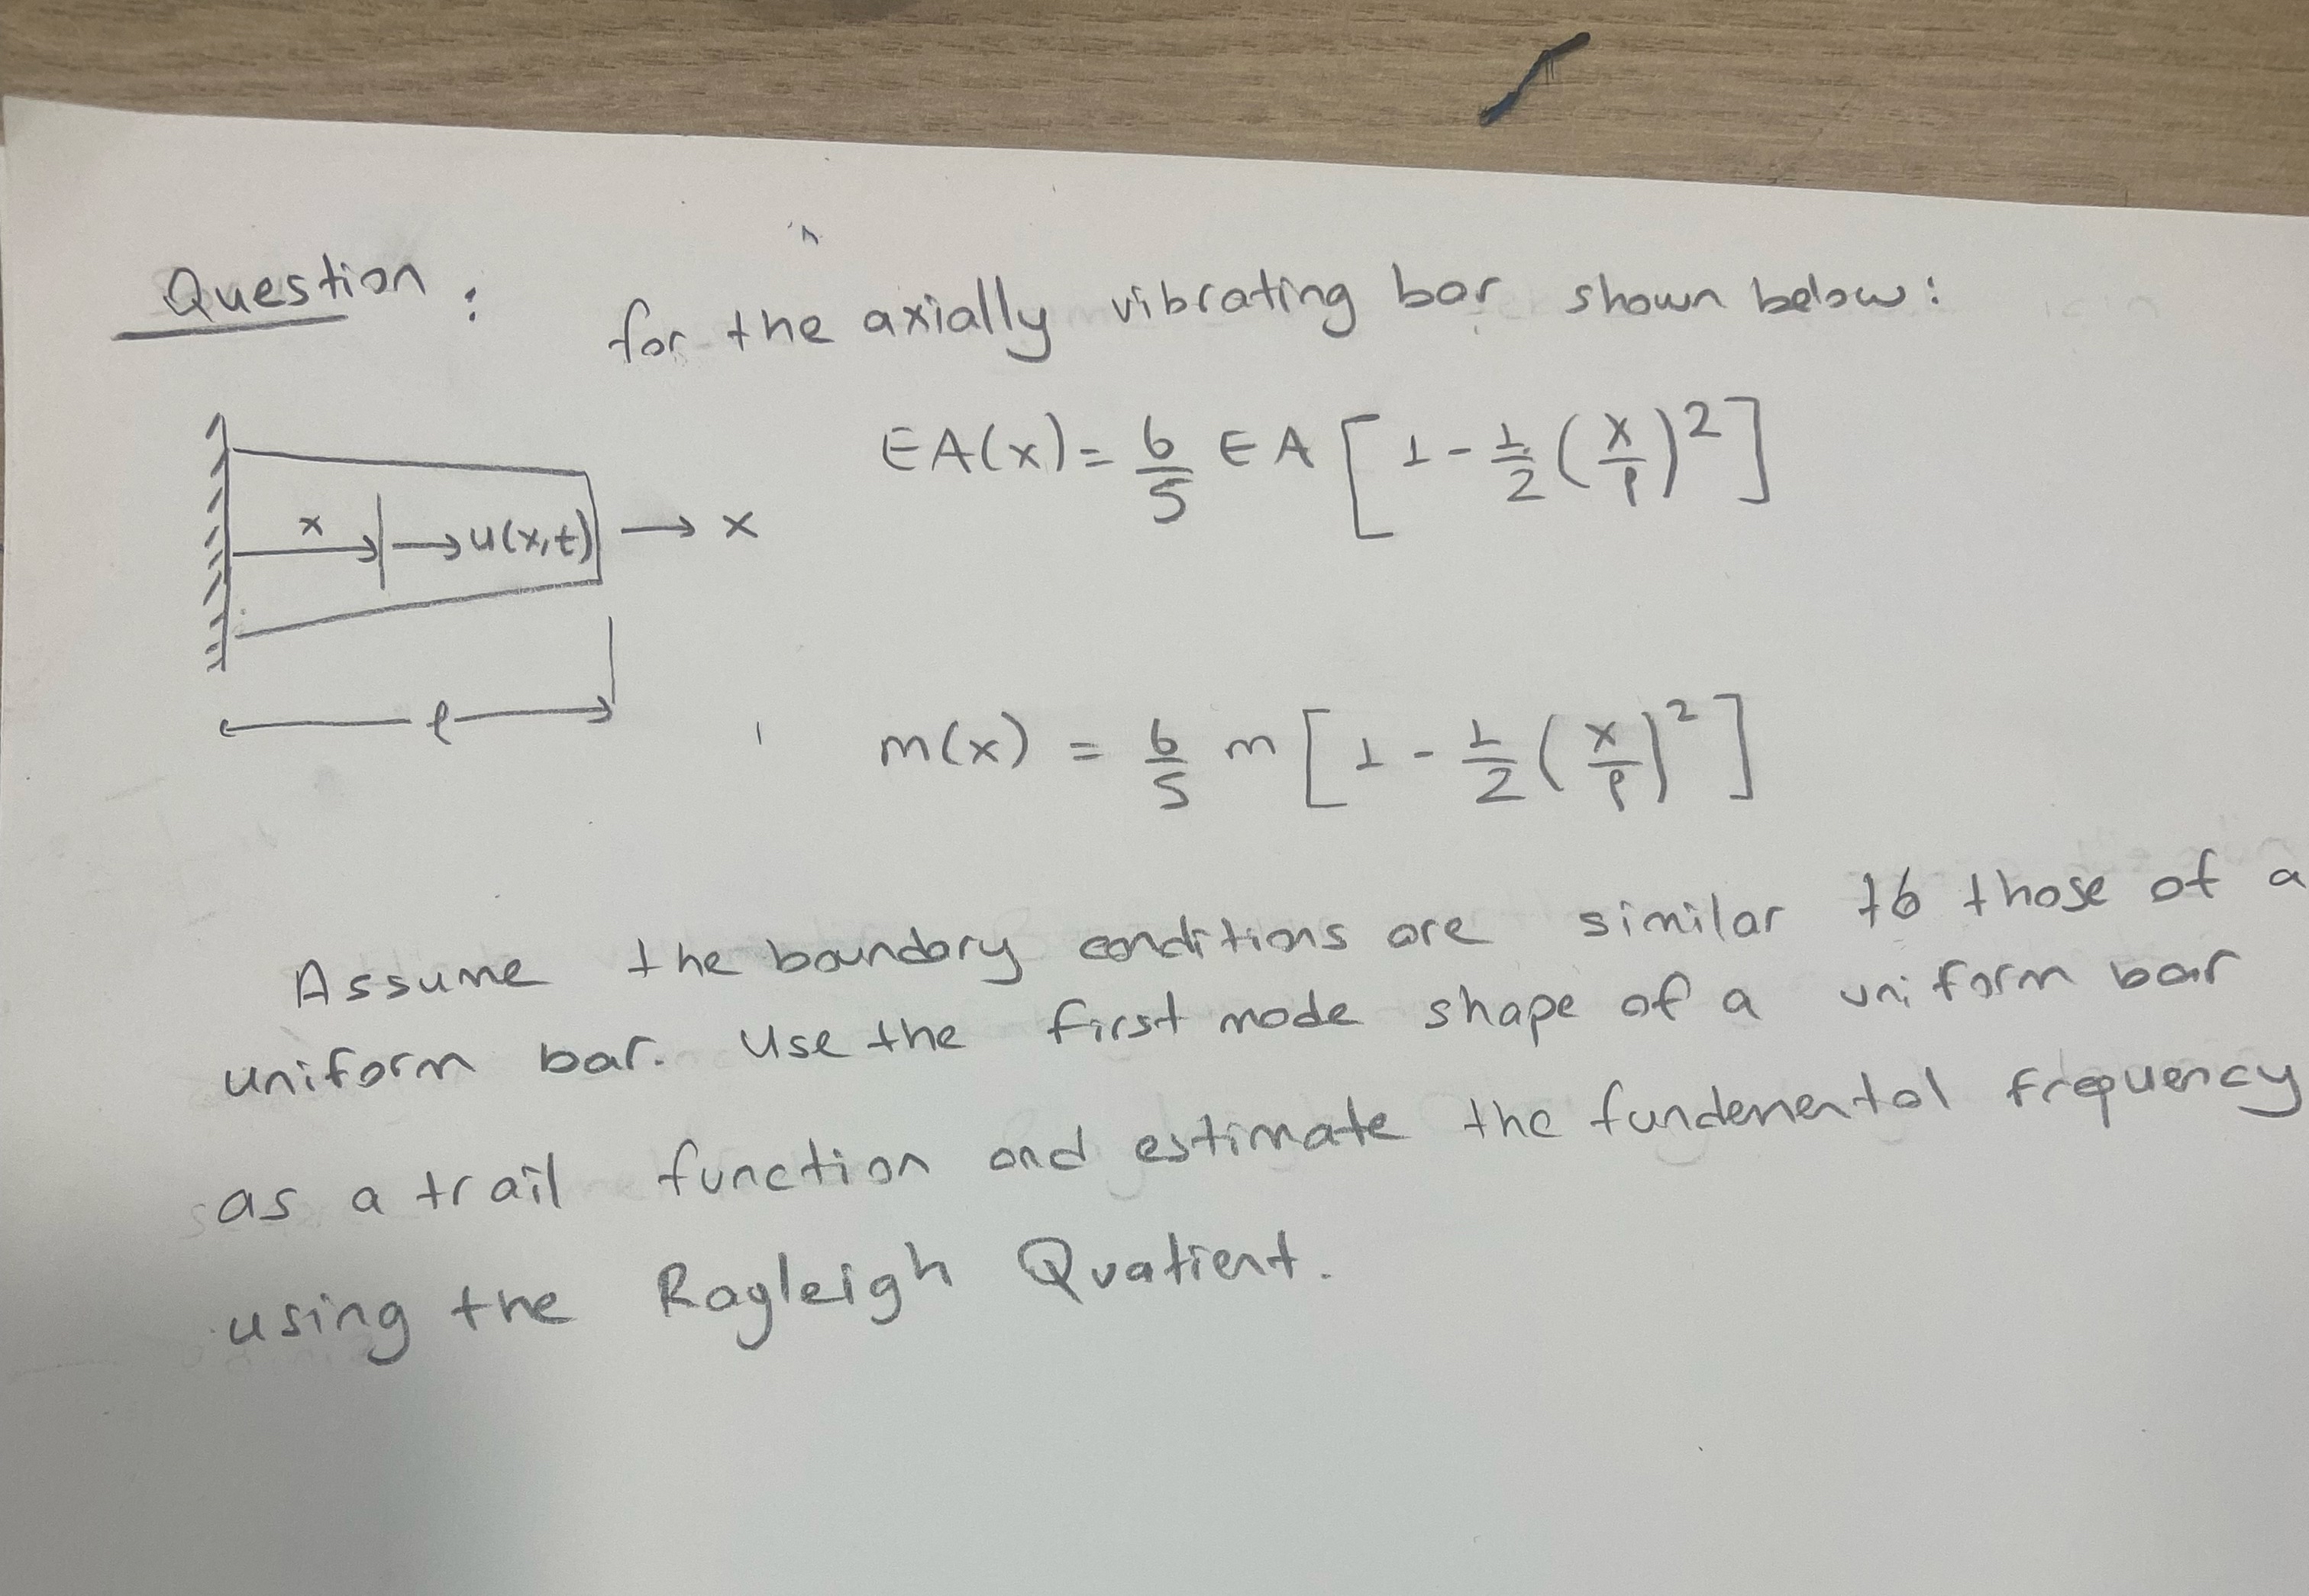 Question :
for the axially vibrating bar shown below:
EA(x) = 6/5 EA [1 - 1/2 (x/l)^2]
x
u(x,t)
x
l
m(x) = 6/5 m [1 - 1/2 (x/l)^2]
Assume the boundary conditions are similar to those of a
uniform bar. Use the first mode shape of a uniform bar
as a trail function and estimate the fundemental frequency
using the Rayleigh Quatient.